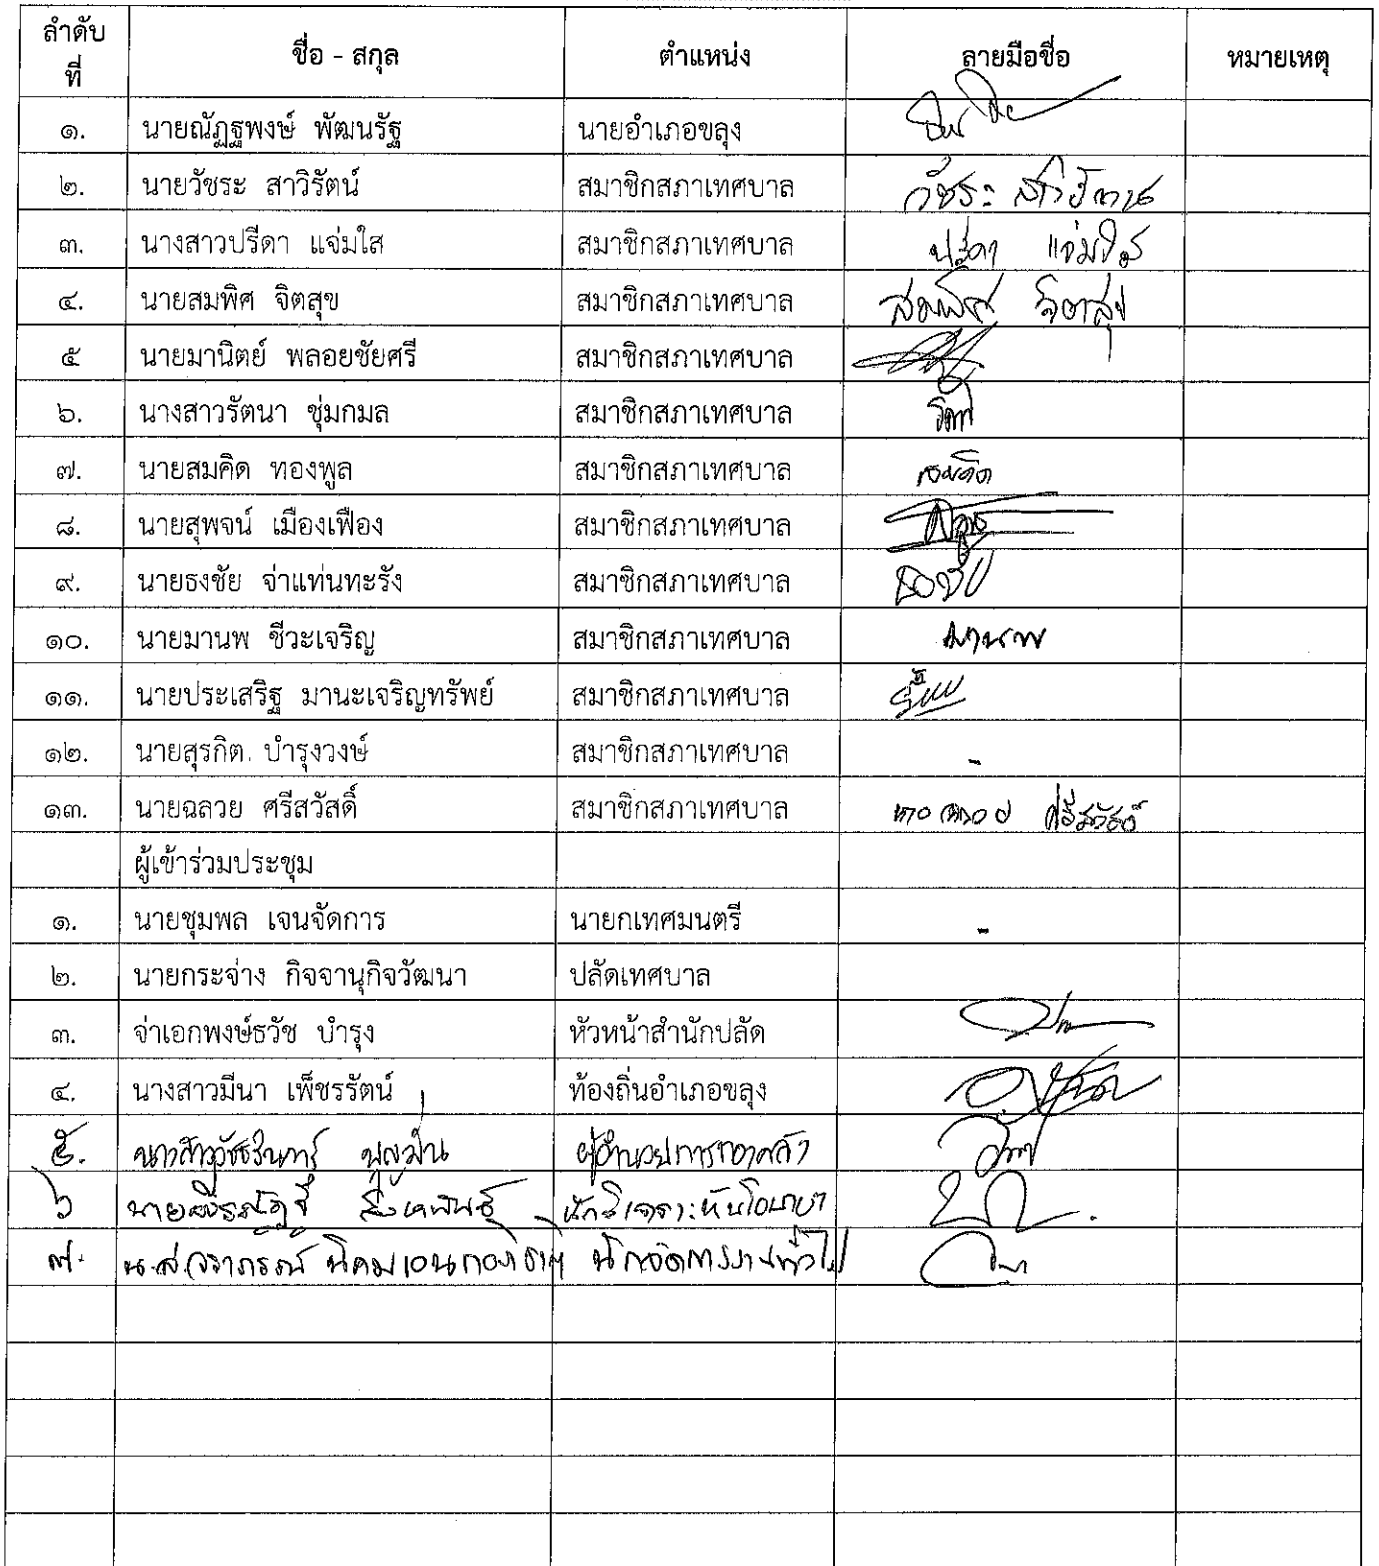 ลำดับที่ ชื่อ - สกุล ตำแหน่ง ลายมือชื่อ หมายเหตุ
๑. นายณัฏฐพงษ์ พัฒนรัฐ นายอำเภอขลุง
๒. นายวัชระ สาวิรัตน์ สมาชิกสภาเทศบาล วัชระ
๓. นางสาวปรีดา แจ่มใส สมาชิกสภาเทศบาล ปรีดา แจ่มใส
๔. นายสมพิศ จิตสุข สมาชิกสภาเทศบาล สมพิศ จิตสุข
๕ นายมานิตย์ พลอยชัยศรี สมาชิกสภาเทศบาล
๖. นางสาวรัตนา ชุ่มกมล สมาชิกสภาเทศบาล
๗. นายสมคิด ทองพูล สมาชิกสภาเทศบาล สมคิด
๘. นายสุพจน์ เมืองเฟือง สมาชิกสภาเทศบาล
๙. นายธงชัย จ่าแท่นทะรัง สมาชิกสภาเทศบาล ธงชัย
๑๐. นายมานพ ชีวะเจริญ สมาชิกสภาเทศบาล มานพ
๑๑. นายประเสริฐ มานะเจริญทรัพย์ สมาชิกสภาเทศบาล
๑๒. นายสุรกิต บำรุงวงษ์ สมาชิกสภาเทศบาล -
๑๓. นายฉลวย ศรีสวัสดิ์ สมาชิกสภาเทศบาล ศรีสวัสดิ์
ผู้เข้าร่วมประชุม
๑. นายชุมพล เจนจัดการ นายกเทศมนตรี -
๒. นายกระจ่าง กิจจานุกิจวัฒนา ปลัดเทศบาล
๓. จ่าเอกพงษ์ธวัช บำรุง หัวหน้าสำนักปลัด
๔. นางสาวมีนา เพ็ชรรัตน์ ท้องถิ่นอำเภอขลุง
๕. นางสาววัชรินทร์ ผู้อำนวยการกองคลัง
๖ นาย
๗. น.ส. นักจัดการงานทั่วไป